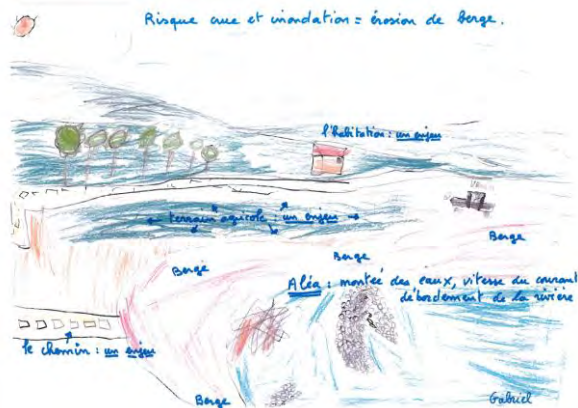 Risque crue et inondation = érosion de berge.
l'habitation : un enjeu
← terrain agricole : un enjeu →
Berge
Berge
Berge
Aléa : montée des eaux, vitesse du courant
débordement de la rivière
le chemin : un enjeu
Berge
Gabriel